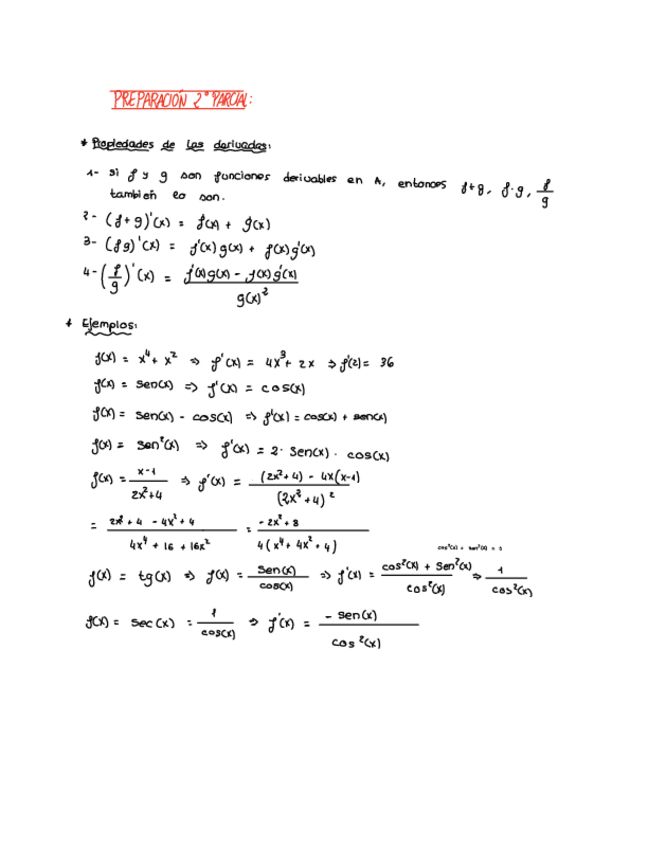 PREPARACIÓN 2º PARCIAL:
* Propiedades de las derivadas:
1- Si f y g son funciones derivables en A, entonces f+g, f·g, f/g
también lo son.
2- (f+g)'(x) = f'(x) + g'(x)
3- (fg)'(x) = f'(x)g(x) + f(x)g'(x)
4- (f/g)'(x) = (f'(x)g(x) - f(x)g'(x))/g(x)²
* Ejemplos:
f(x) = x⁴ + x² ⇒ f'(x) = 4x³ + 2x ⇒ f'(2) = 36
f(x) = sen(x) ⇒ f'(x) = cos(x)
f(x) = sen(x) - cos(x) ⇒ f'(x) = cos(x) + sen(x)
f(x) = sen²(x) ⇒ f'(x) = 2· sen(x) · cos(x)
f(x) = (x-1)/(2x²+4) ⇒ f'(x) = ((2x²+4) - 4x(x-1))/(2x²+4)²
= (2x² + 4 - 4x² + 4)/(4x⁴ + 16 + 16x²) = (-2x² + 8)/(4(x⁴ + 4x² + 4))
f(x) = tg(x) ⇒ f(x) = sen(x)/cos(x) ⇒ f'(x) = (cos²(x) + sen²(x))/cos²(x) ⇒ 1/cos²(x)
f(x) = sec(x) = 1/cos(x) ⇒ f'(x) = -sen(x)/cos²(x)